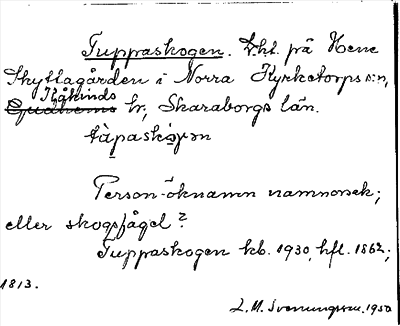 Tuppaskogen. Trkt. på Hene
Skyttagården i Norra Kyrketorps s:n,
Kåkinds
Gudhems hr, Skaraborgs län.
tùpaskò̤gən
Person-öknamn namnorsek;
eller skogsfågel?
Tuppaskogen kb. 1930, hfl. 1862,
1813.
L.M. Svenungsson. 1950